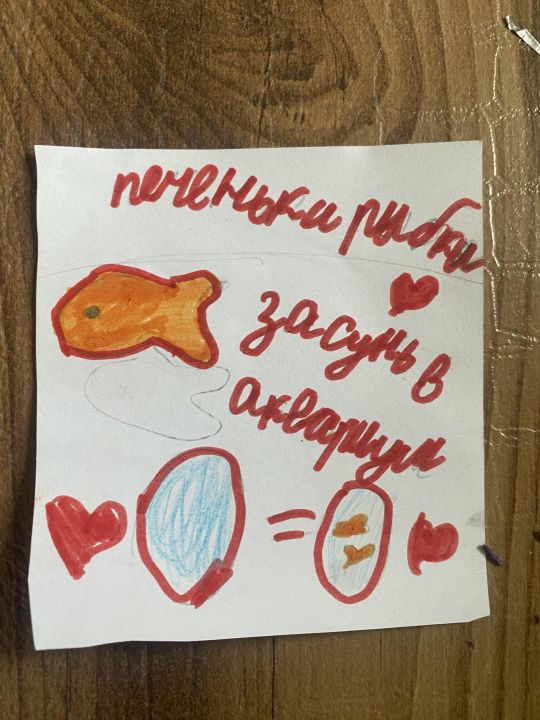 печеньки рыбки
засунь в
аквариум
=